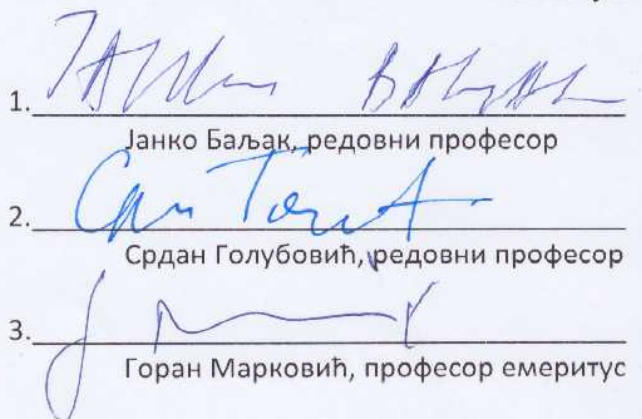 1.
Јанко Баљак, редовни професор
2.
Срдан Голубовић, редовни професор
3.
Горан Марковић, професор емеритус